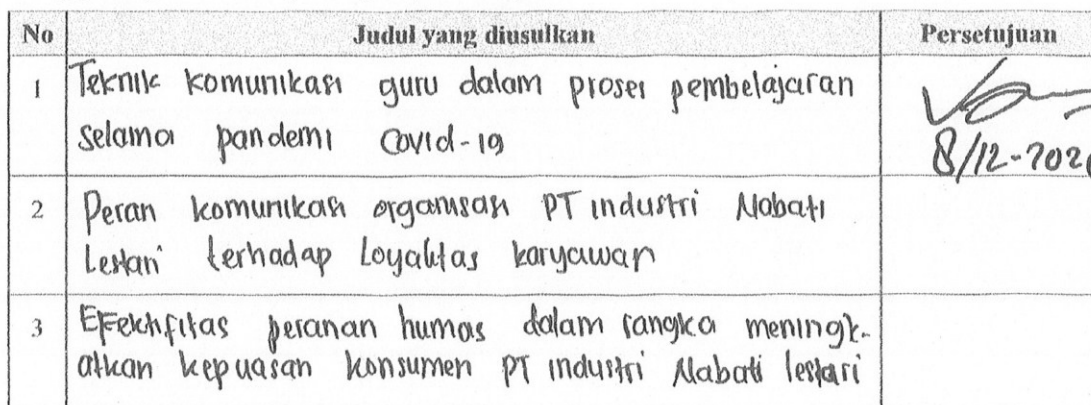 No Judul yang diusulkan Persetujuan
1 Teknik komunikasi guru dalam proses pembelajaran
selama pandemi Covid-19
8/12-2020
2 Peran komunikasi organisasi PT industri Nabati
Lestari terhadap Loyalitas karyawan
3 Efektifitas peranan humas dalam rangka meningk-
atkan kepuasan konsumen PT industri Nabati lestari